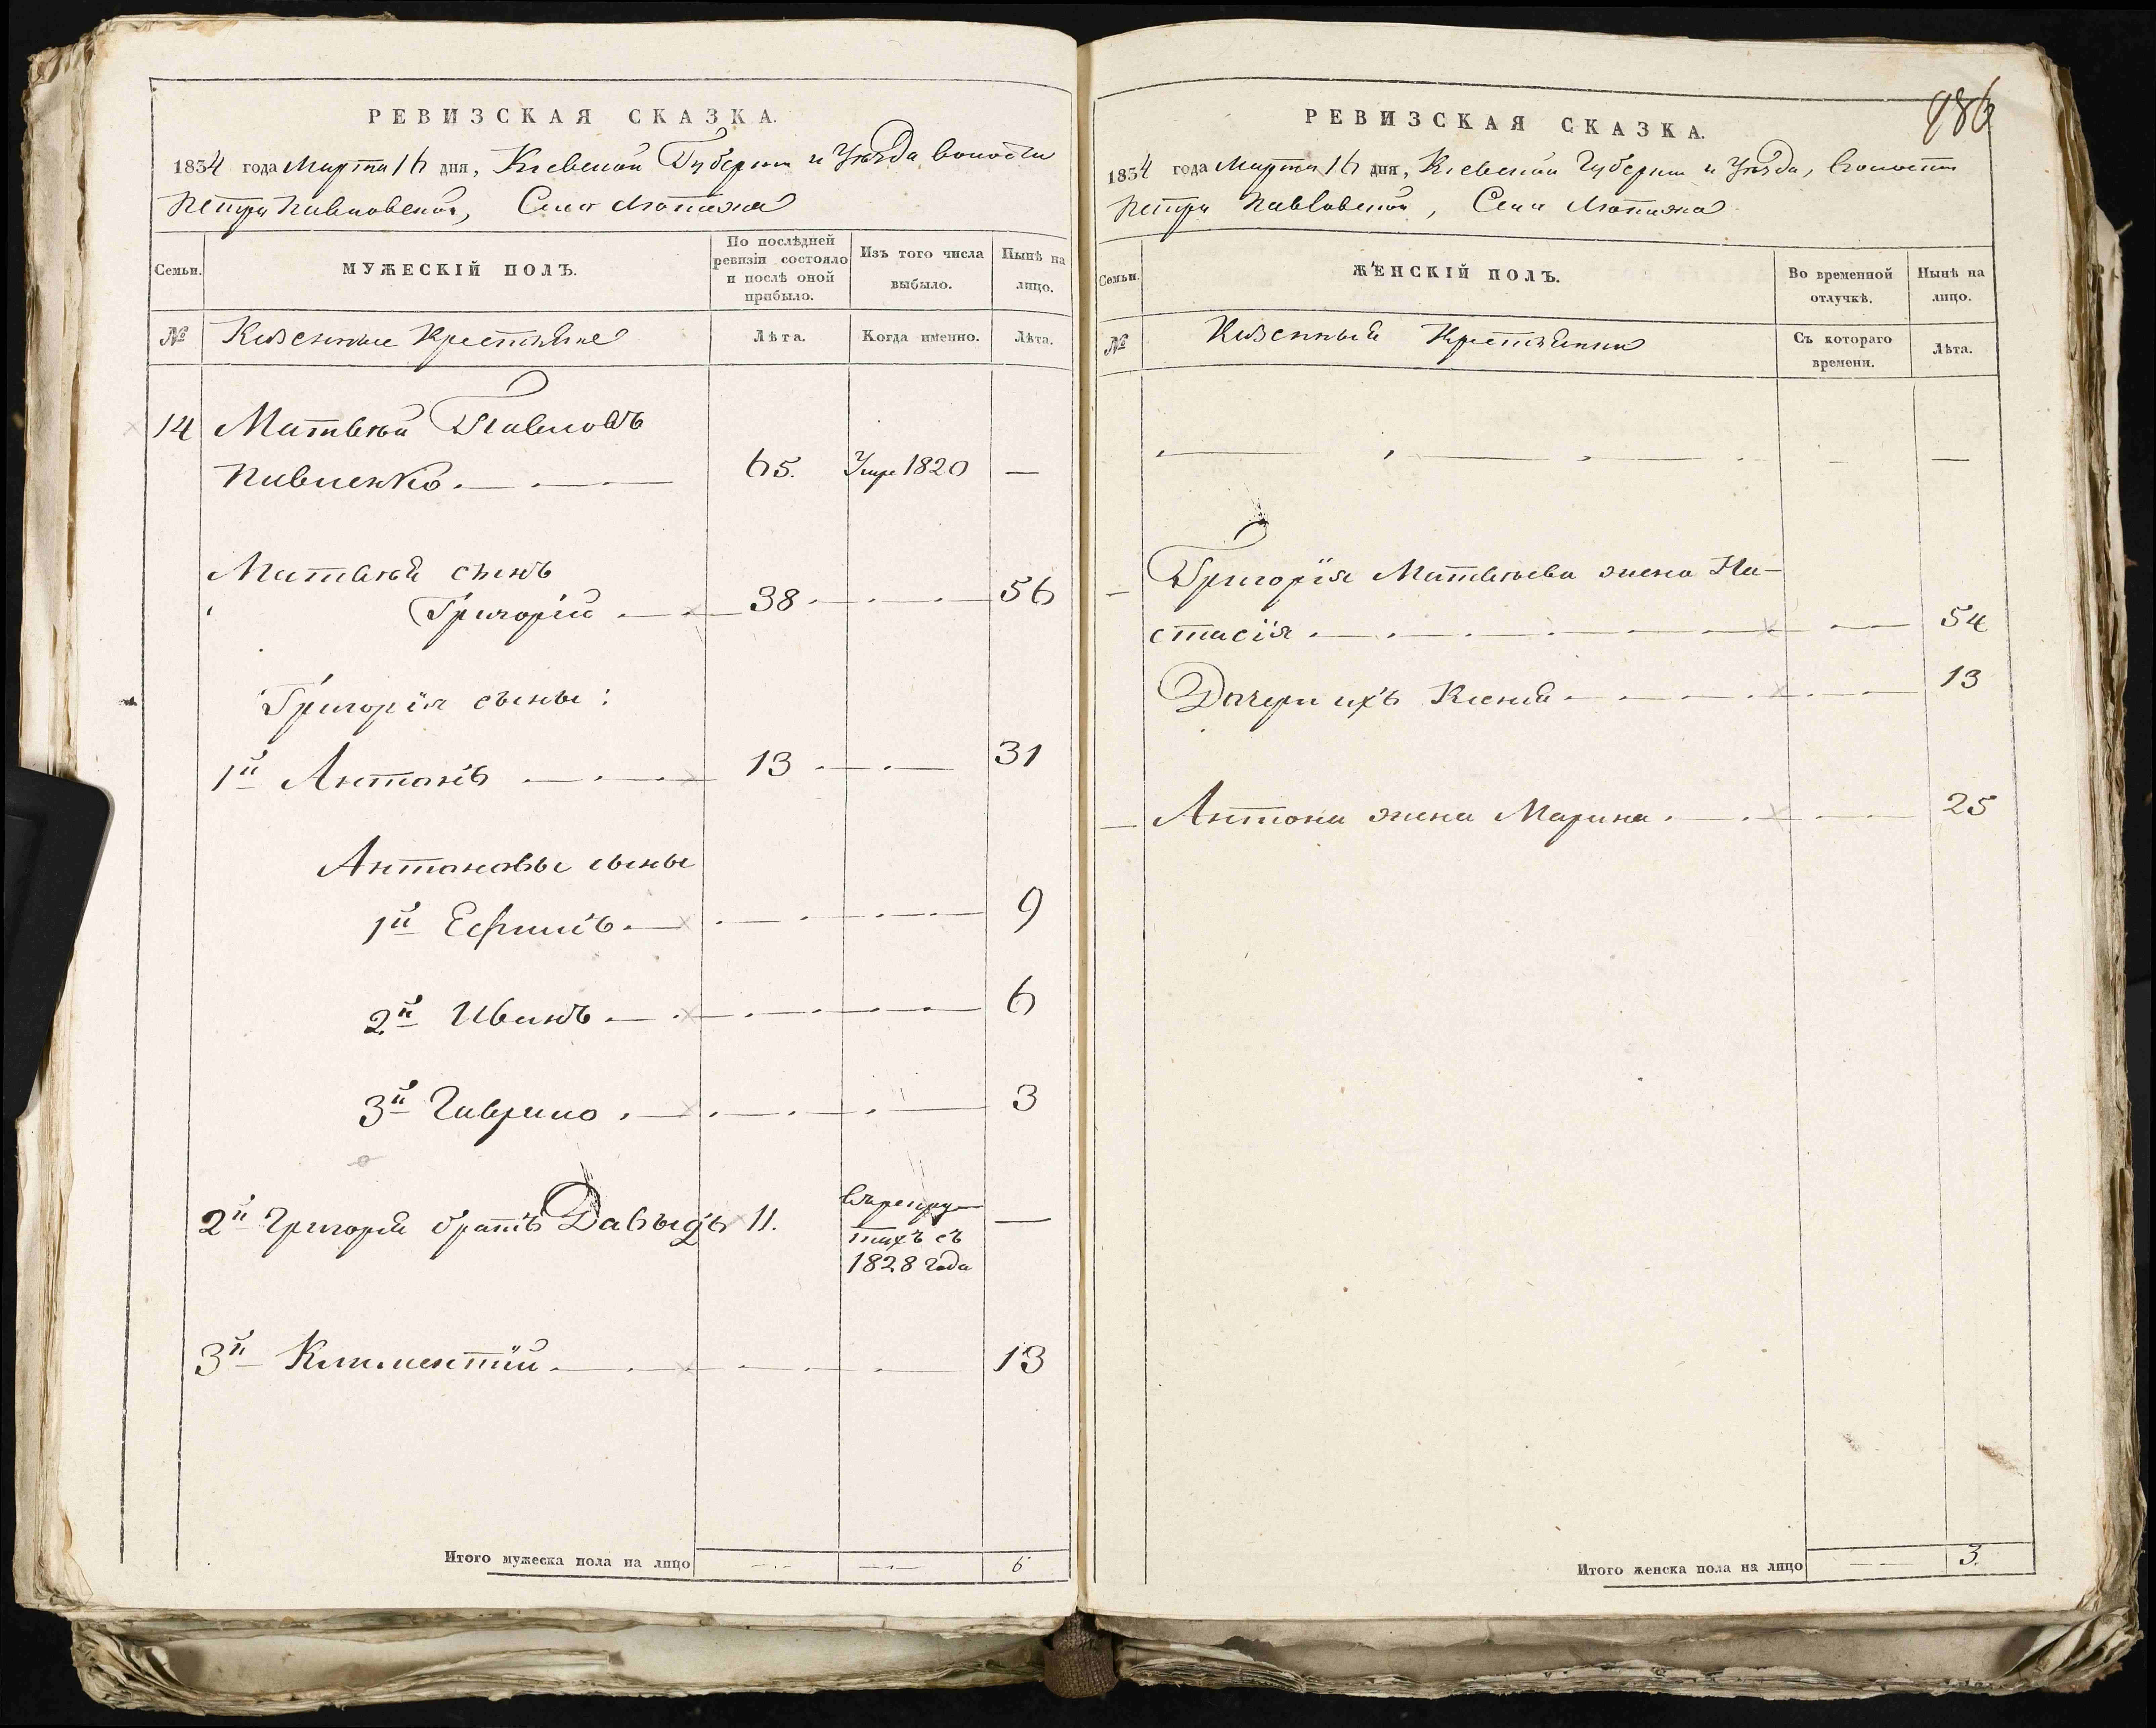 РЕВИЗСКАЯ СКАЗКА.
1834 года Марта 16 дня, Кіевской Губерніи и Уѣзда волости
Петро Павловской, Села Лютежа
Семьи.
МУЖЕСКІЙ ПОЛЪ.
По послѣдней ревизіи состояло и послѣ оной прибыло.
Изъ того числа выбыло.
Нынѣ на лицо.
№
Казенные Крестьяне
Лѣта.
Когда именно.
Лѣта.
14 Матвѣй Павловъ
Павленко. 65. Умре 1820 —
Матвѣя сынъ
Григорій 38 56
Григорія сыны:
1й Антонъ 13 31
Антоновы сыны
1й Ефимъ 9
2й Иванъ 6
3й Гаврило 3
2й Григорія братъ Давыдъ 11. Въ рекру-
тахъ съ
1828 года —
3й Климентій 13
Итого мужеска пола на лицо 6
РЕВИЗСКАЯ СКАЗКА.
186
1834 года Марта 16 дня, Кіевской Губерніи и Уѣзда, волости
Петро Павловской, Села Лютежа
Семьи.
ЖЕНСКІЙ ПОЛЪ.
Во временной отлучкѣ.
Нынѣ на лицо.
№
Казенныя Крестьянки
Съ котораго времени.
Лѣта.
Григорія Матвѣева жена На-
стасія 54
Дочери ихъ Ксенія 13
Антона жена Марина 25
Итого женска пола на лицо 3.